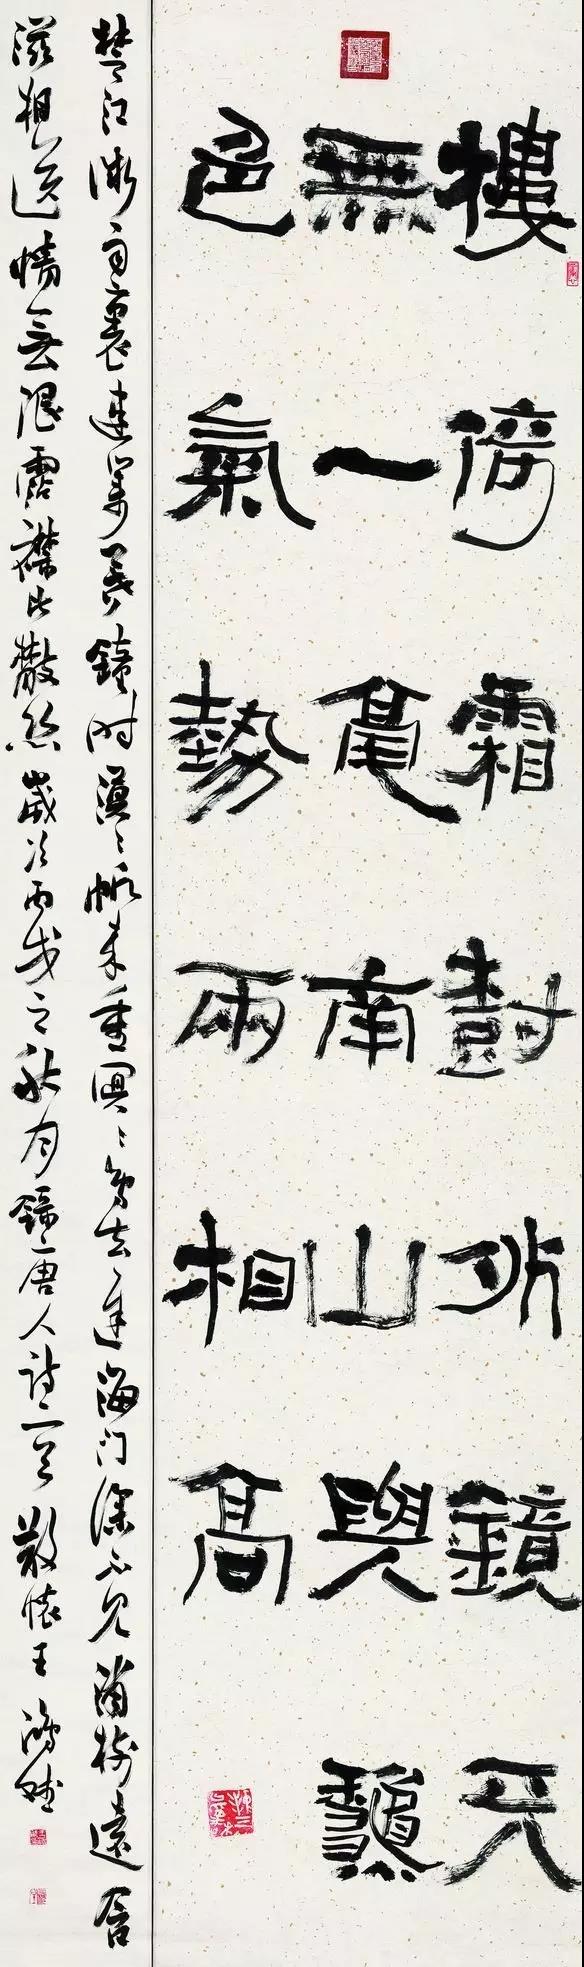 樓倚霜樹外鏡天
無一毫南山與龝
色氣勢兩相高
楚江微雨裏建業暮鐘時漠々帆來重冥々鳥去遲海門深不見浦樹遠含
滋相送情無限霑襟比散絲歲次丙戌之秋月錄唐人詩二首散懷王鴻